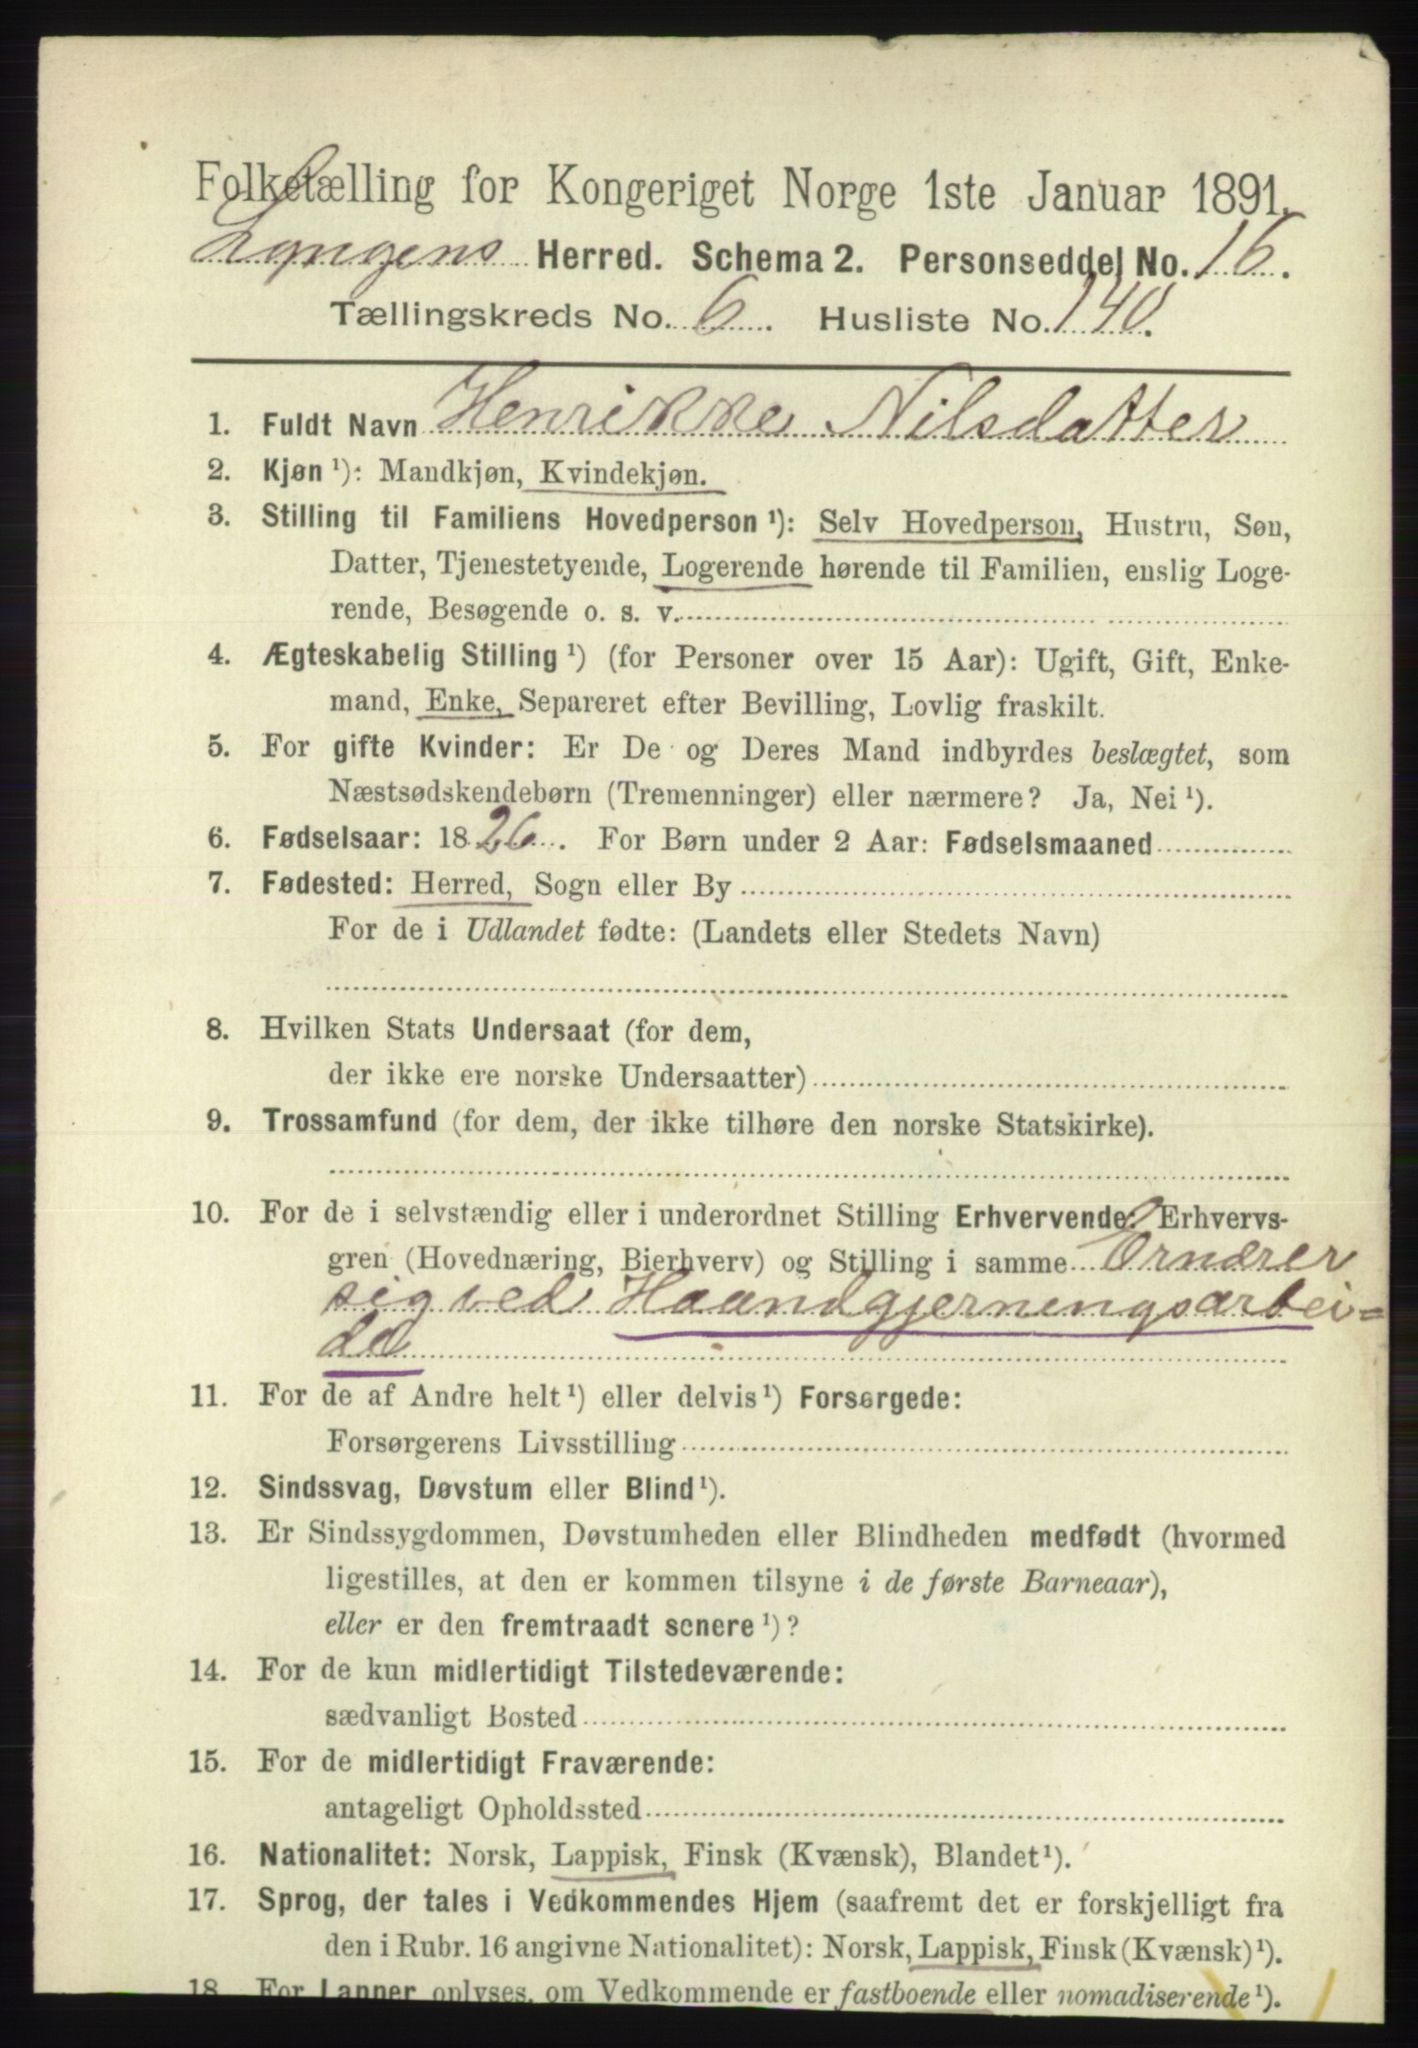 Folketælling for Kongeriget Norge 1ste Januar 1891.
Lyngens Herred. Schema 2. Personseddel No. 16.
Tællingskreds No. 6. Husliste No. 140.
1. Fuldt Navn Henrikke Nilsdatter
2. Kjøn ¹): Mandkjøn, Kvindekjøn.
3. Stilling til Familiens Hovedperson ¹): Selv Hovedperson, Hustru, Søn,
Datter, Tjenestetyende, Logerende hørende til Familien, enslig Loge-
rende, Besøgende o. s. v.
4. Ægteskabelig Stilling ¹) (for Personer over 15 Aar): Ugift, Gift, Enke-
mand, Enke, Separeret efter Bevilling, Lovlig fraskilt.
5. For gifte Kvinder: Er De og Deres Mand indbyrdes beslægtet, som
Næstsødskendebørn (Tremenninger) eller nærmere? Ja, Nei ¹).
6. Fødselsaar: 1826. For Børn under 2 Aar: Fødselsmaaned
7. Fødested: Herred, Sogn eller By
For de i Udlandet fødte: (Landets eller Stedets Navn)
8. Hvilken Stats Undersaat (for dem,
der ikke ere norske Undersaatter)
9. Trossamfund (for dem, der ikke tilhøre den norske Statskirke).
10. For de i selvstændig eller i underordnet Stilling Erhvervende: Erhvervs-
gren (Hovednæring, Bierhverv) og Stilling i samme Ernærer
sig ved Haandgjerningsarbei=
de
11. For de af Andre helt ¹) eller delvis ¹) Forsørgede:
Forsørgerens Livsstilling
12. Sindssvag, Døvstum eller Blind ¹).
13. Er Sindssygdommen, Døvstumheden eller Blindheden medfødt (hvormed
ligestilles, at den er kommen tilsyne i de første Barneaar),
eller er den fremtraadt senere ¹)?
14. For de kun midlertidigt Tilstedeværende:
sædvanligt Bosted
15. For de midlertidigt Fraværende:
antageligt Opholdssted
16. Nationalitet: Norsk, Lappisk, Finsk (Kvænsk), Blandet ¹).
17. Sprog, der tales i Vedkommendes Hjem (saafremt det er forskjelligt fra
den i Rubr. 16 angivne Nationalitet): Norsk, Lappisk, Finsk (Kvænsk) ¹).
18. For Lapper oplyses, om Vedkommende er fastboende eller nomadiserende ¹).